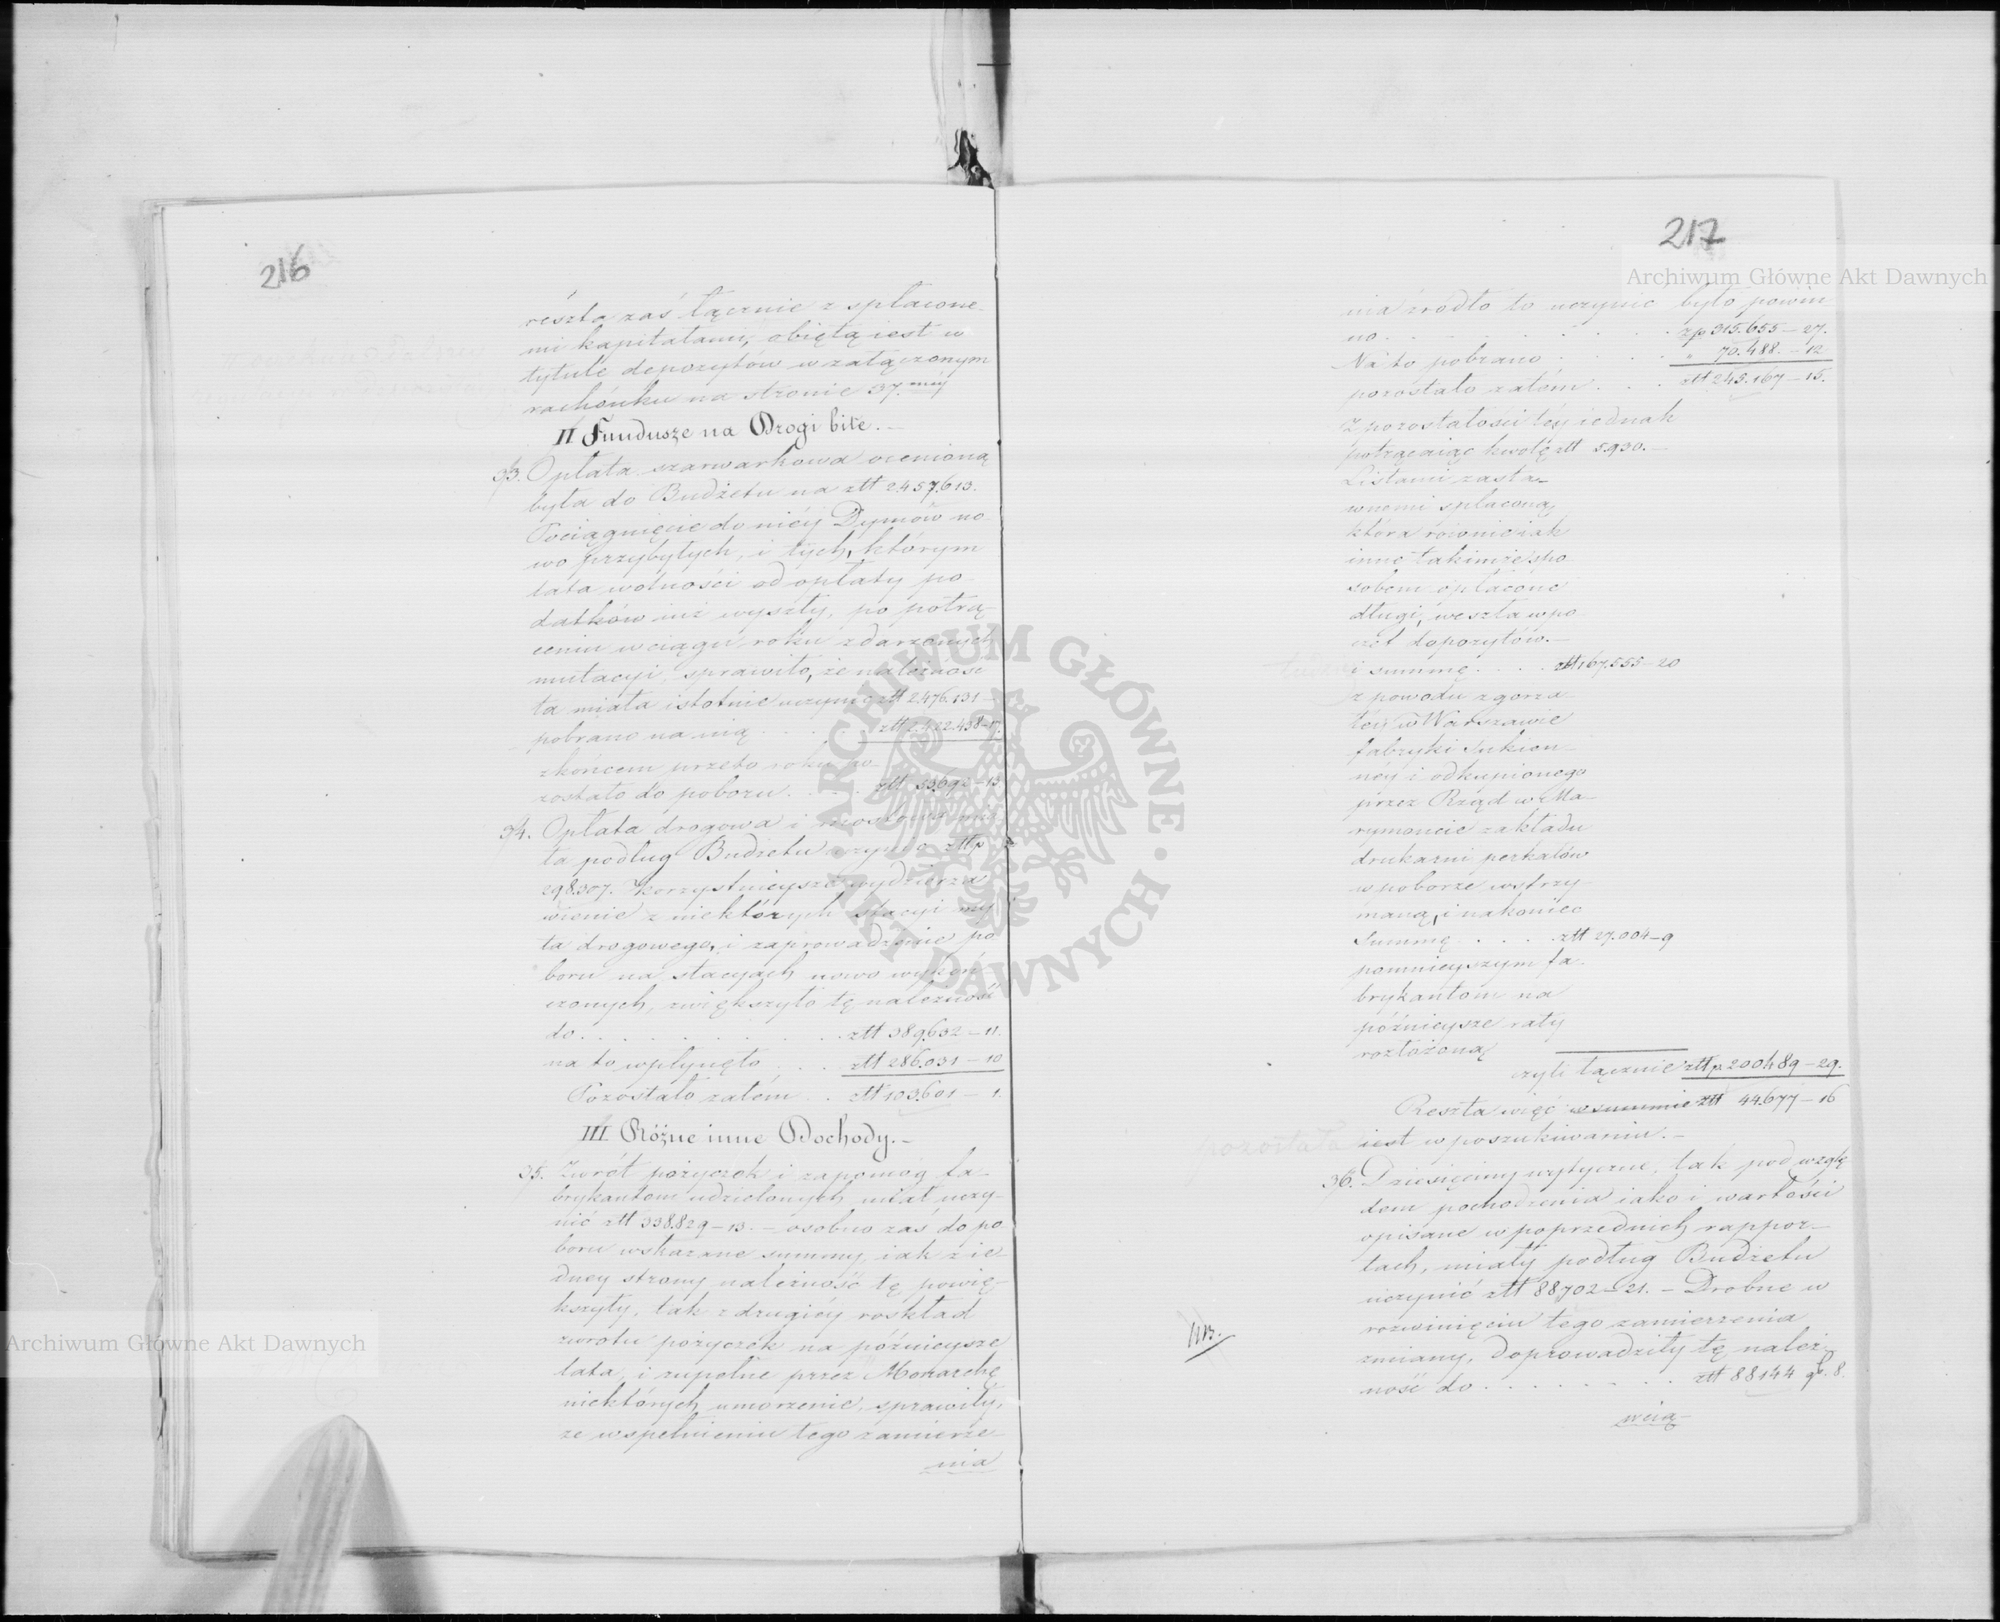 216
résztą zaś łącznie z spłacone-
mi kapitałami, obiętą iest w
tytule depozytów w załączonym
rachónku na stronie 37.méy
II Fundusze na Drogi bite.-
33. Opłata szarwarkowa ocenioną
była do Budżetu na złt 2.457.613.
Pociągnięcie do niéy Dymów no-
wo przybyłych, i tych, którym
lata wolności od opłaty po-
datków iuż wyszły, po potrą-
ceniu wciągu roku zdarzonych
mutacyi, sprawiło, że należność
ta miała istotnie uczynić złt 2.476.131-
pobrano na nią . . . . złt 2.422.438-17.
z końcem przeto roku po-
zostało do poboru . . . . złt 53.692-13
34. Opłata drogowa i mostowa mia
ła podług Budżetu uczynić złtp
298.307. Korzystnieysze wydzierża
wienie z niektórych stacyi my
ta drogowego, i zaprowadzenie po
boru na stacyach nowo wykoń
czonych, zwiększyło tę należność
do . . . . . . . . . złt 389.632-11.
na to wpłynęło . . . złt 286.031-10
Pozostało zatém . . złt 103.601-1.
III Różne inne Dochody.-
35. Zwrót pożyczek i zapomog fa-
brykantom udzielonych, miał uczy-
nić złt 338.829-13.- osobno zaś do po
boru wskazane summy, iak z ie-
dney strony należność tę powię-
kszyły, tak z drugiey roskład
zwrotu pożyczek na późnieysze
lata, i zupełne przez Monarchę
niektórych umorzenie, sprawiły,
że wspełnieniu tego zamierze-
nia
217
nia źródło to uczynić było powin
no . . . . . . . złp 315.655-27.
Na to pobrano . . . . " 70.488.-12
pozostało zatém . . . złt 245.167-15.
Z pozostałości téy iednak
potrącaiąc kwotę złt 5.930.-
Listami zasta-
wnemi spłaconą,
która równie iak
inne takimże spo
sobem opłacone
długi, weszła w po
czet depozytów.-
i summę . . . . złt 167.555-20
z powodu zgorza
łey w Warszawie
fabryki Sukien-
néy i odkupionego
przez Rząd w Ma-
rymoncie zakładu
drukarni perkalów
w poborze wstrzy-
maną, i nakoniec
Summę . . . . złt 27.004-9
pomnieyszym fa-
brykantom na
późnieysze raty
rozłożoną
czyli łącznie złtp. 200.489-29.
Reszta więc w summie złt 44.677-16
iest w poszukiwaniu.-
36. Dziesięciny wytyczne, tak pod wzglę
dem pochodzenia iako i wartości
opisane w poprzednich rappor-
tach, miały podług Budżetu
uczynić złt 88702-21.- Drobne w
rozwinięciu tego zamierzenia
zmiany, doprowadziły tę należ-
ność do . . . . . . . złt 88144 gr. 8.
wcią-
Archiwum Główne Akt Dawnych
Archiwum Główne Akt Dawnych
ARCHIWUM GŁÓWNE · AKT DAWNYCH ·